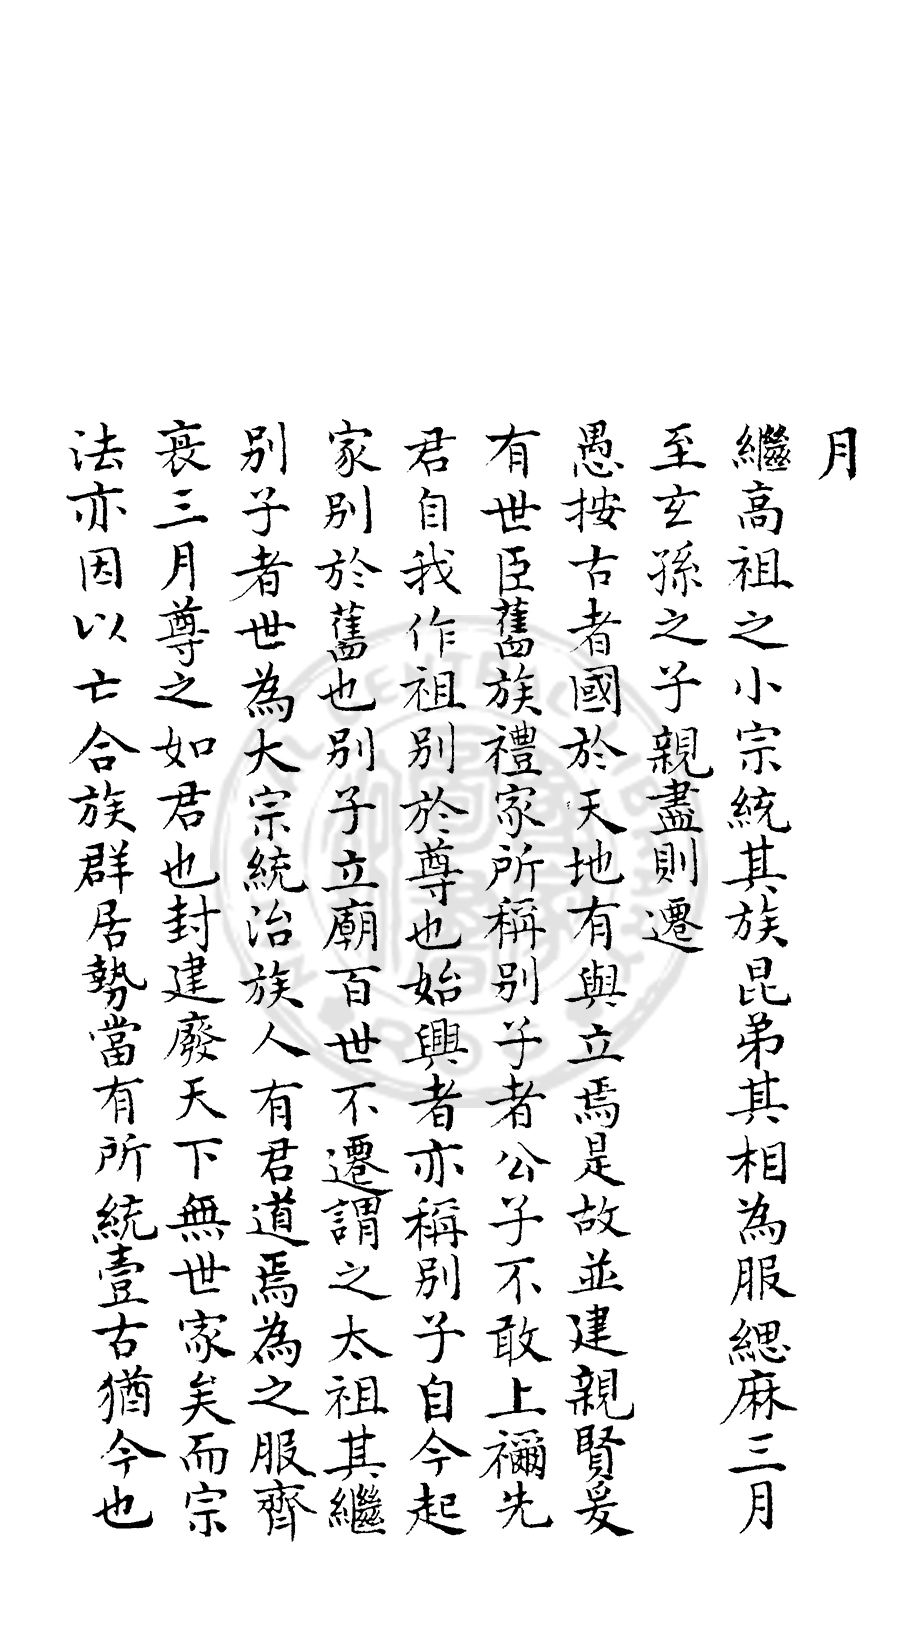 月
繼高祖之小宗統其族昆弟其相為服緦麻三月
至玄孫之子親盡則遷
愚按古者國於天地有與立焉是故並建親賢爰
有世臣舊族禮家所稱別子者公子不敢上禰先
君自我作祖別於尊也始興者亦稱別子自今起
家別於舊也別子立廟百世不遷謂之太祖其繼
別子者世為大宗統治族人有君道焉為之服齊
衰三月尊之如君也封建廢天下無世家矣而宗
法亦因以亡合族群居勢當有所統壹古猶今也